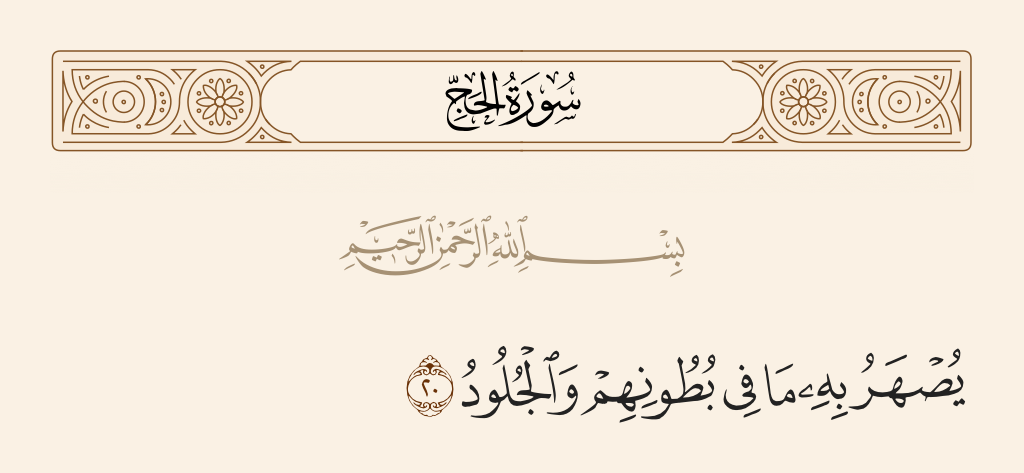 سُورَةُ الْحَجِّ
بِسْمِ ٱللَّهِ ٱلرَّحْمَٰنِ ٱلرَّحِيمِ
يُصْهَرُ بِهِۦ مَا فِى بُطُونِهِمْ وَٱلْجُلُودُ ٢٠